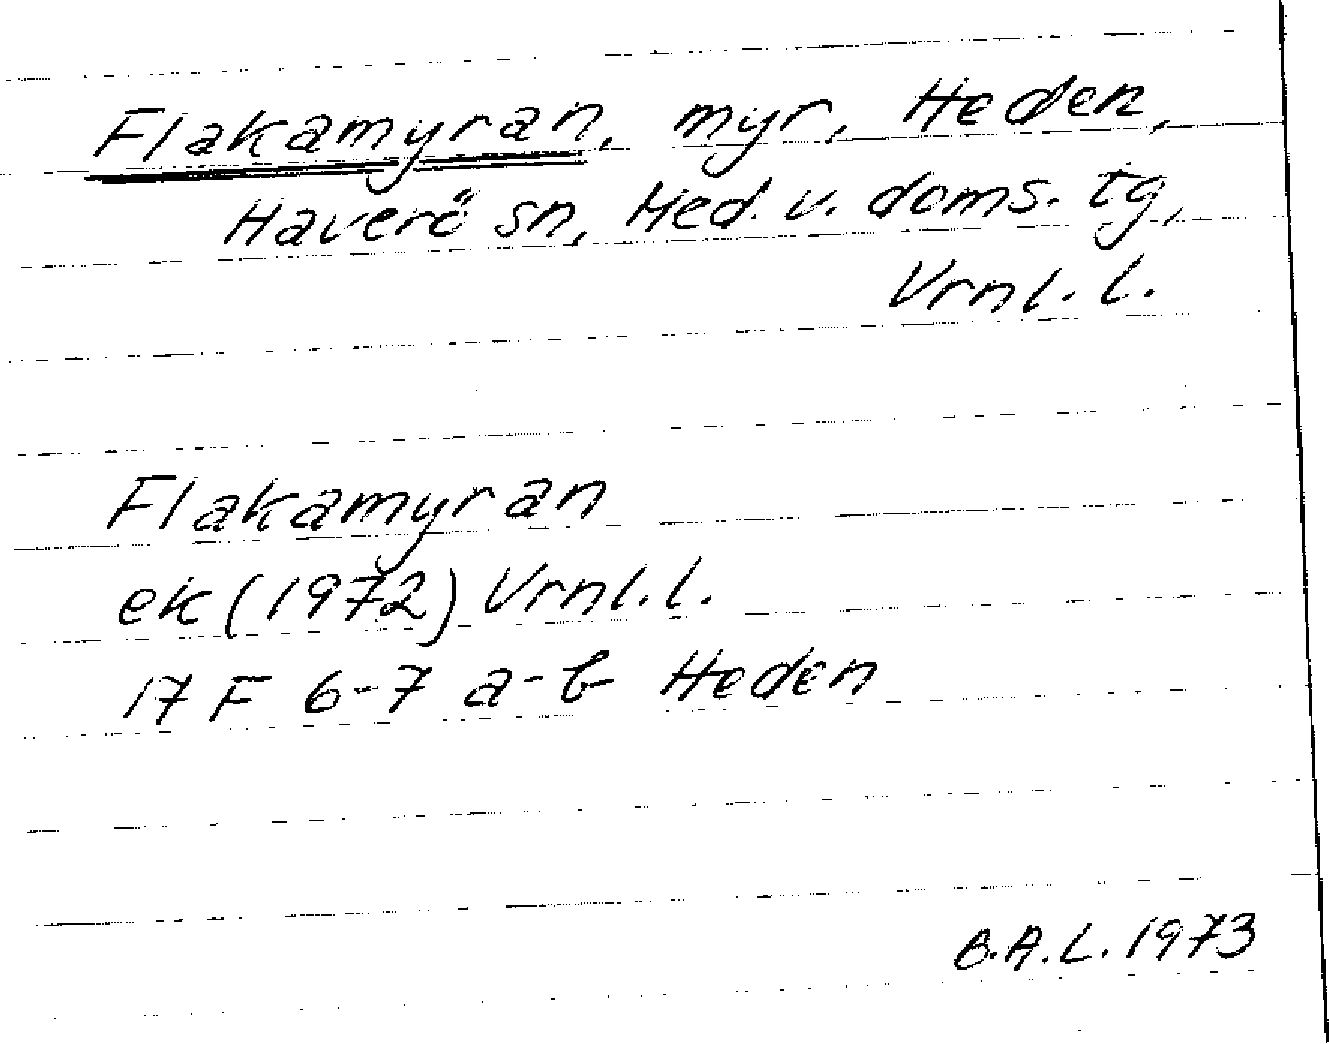 Flakamyran, myr, Heden,
Haverö sn, Med. v. doms. tg,
Vrnl. l.
Flakamyran
ek (1972) Vrnl. l.
17 F 6-7 a-b Heden
B.A.L. 1973